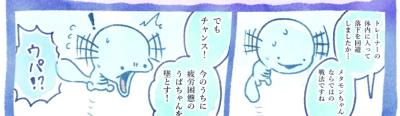 トレーナーの
体内に入って
落下を回避
しましたか…
メタモンちゃん
ならではの
戦法ですね
でも
チャンス！
今のうちに
疲労困憊の
うぱちゃんを
墜とす！
ウパ！？